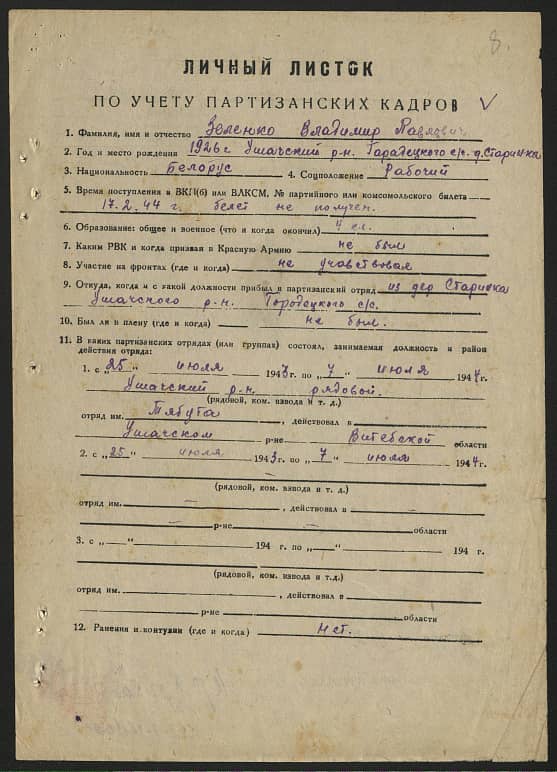 8.
ЛИЧНЫЙ ЛИСТОК
ПО УЧЕТУ ПАРТИЗАНСКИХ КАДРОВ
1. Фамилия, имя и отчество Зеленко Владимир Павлович
2. Год и место рождения 1926 г Ушачский р-н. Гарадецкого с/с. д. Старинка
3. Национальность Белорус 4. Соцположение Рабочий
5. Время поступления в ВКП(б) или ВЛКСМ, № партийного или комсомольского билета –
17.2.44 г. билет не получен.
6. Образование: общее и военное (что и когда окончил) 4 кл.
7. Каким РВК и когда призван в Красную Армию не был
8. Участие на фронтах (где и когда) не учавствовал
9. Откуда, когда и с какой должности прибыл в партизанский отряд из дер Старинка
Ушачского р-н. Городецкого с/с.
10. Был ли в плену (где и когда) не был.
11. В каких партизанских отрядах (или группах) состоял, занимаемая должность и район
действия отряда:
1. с „25" июля 1943 г. по „7" июля 1944 г.
Ушачский р-н. рядовой.
(рядовой, ком. взвода и т. д.)
отряд им. Тябута, действовал в
Ушачском р-не Витебской области
2. с „25" июля 1943 г. по „7" июля 1944 г.
(рядовой, ком. взвода и т.д.)
отряд им. — , действовал в —
— р-не — области
3. с „—" 194 г. по „—" 194 г.
(рядовой, ком. взвода и т.д.)
отряд им. , действовал в
р-не области
12. Ранения и контузии (где и когда) нет.